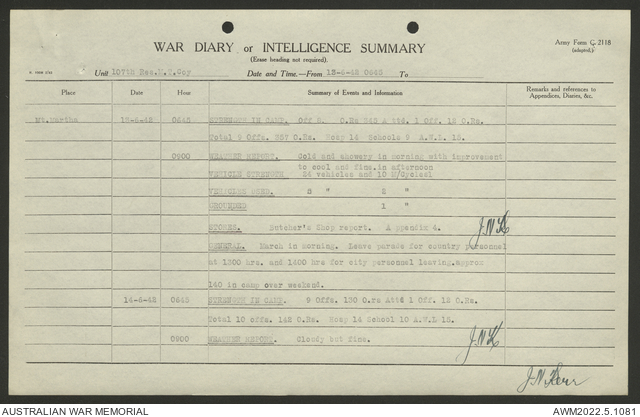 WAR DIARY or INTELLIGENCE SUMMARY
Army Form C. 2118
(adapted.)
(Erase heading not required).
Unit 107th Res. M.T. Coy Date and Time.—From 13-6-42 0645 To
Place Date Hour Summary of Events and Information Remarks and references to Appendices, Diaries, &c.
Mt. Martha 13-6-42 0645 STRENGTH IN CAMP. Off 8. O.Rs 345 Attd. 1 Off. 12 O.Rs.
Total 9 Offs. 357 O.Rs. Hosp 14 Schools 9 A.W.L 15.
0900 WEATHER REPORT. Cold and showery in morning with improvement
to cool and fine.in afternoon
VEHICLE STRENGTH 24 vehicles and 10 M/Cycles)
VEHICLES USED. 3 " 2 "
GROUNDED 1 "
STORES. Butcher's Shop report. A ppendix 4.
J.N.K
GENERAL. March in morning. Leave parade for country personnel
at 1300 hrs. and 1400 hrs for city personnel leaving.approx
140 in camp over weekend.
14-6-42 0645 STRENGTH IN CAMP. 9 Offs. 130 O.rs Attd 1 Off 12 O.Rs.
Total 10 offs. 142 O.Rs. Hosp 14 School 10 A.W.L 15.
0900 WEATHER REPORT. Cloudy but fine.
J.N.K
J.N.Kerr
AUSTRALIAN WAR MEMORIAL
AWM2022.5.1081